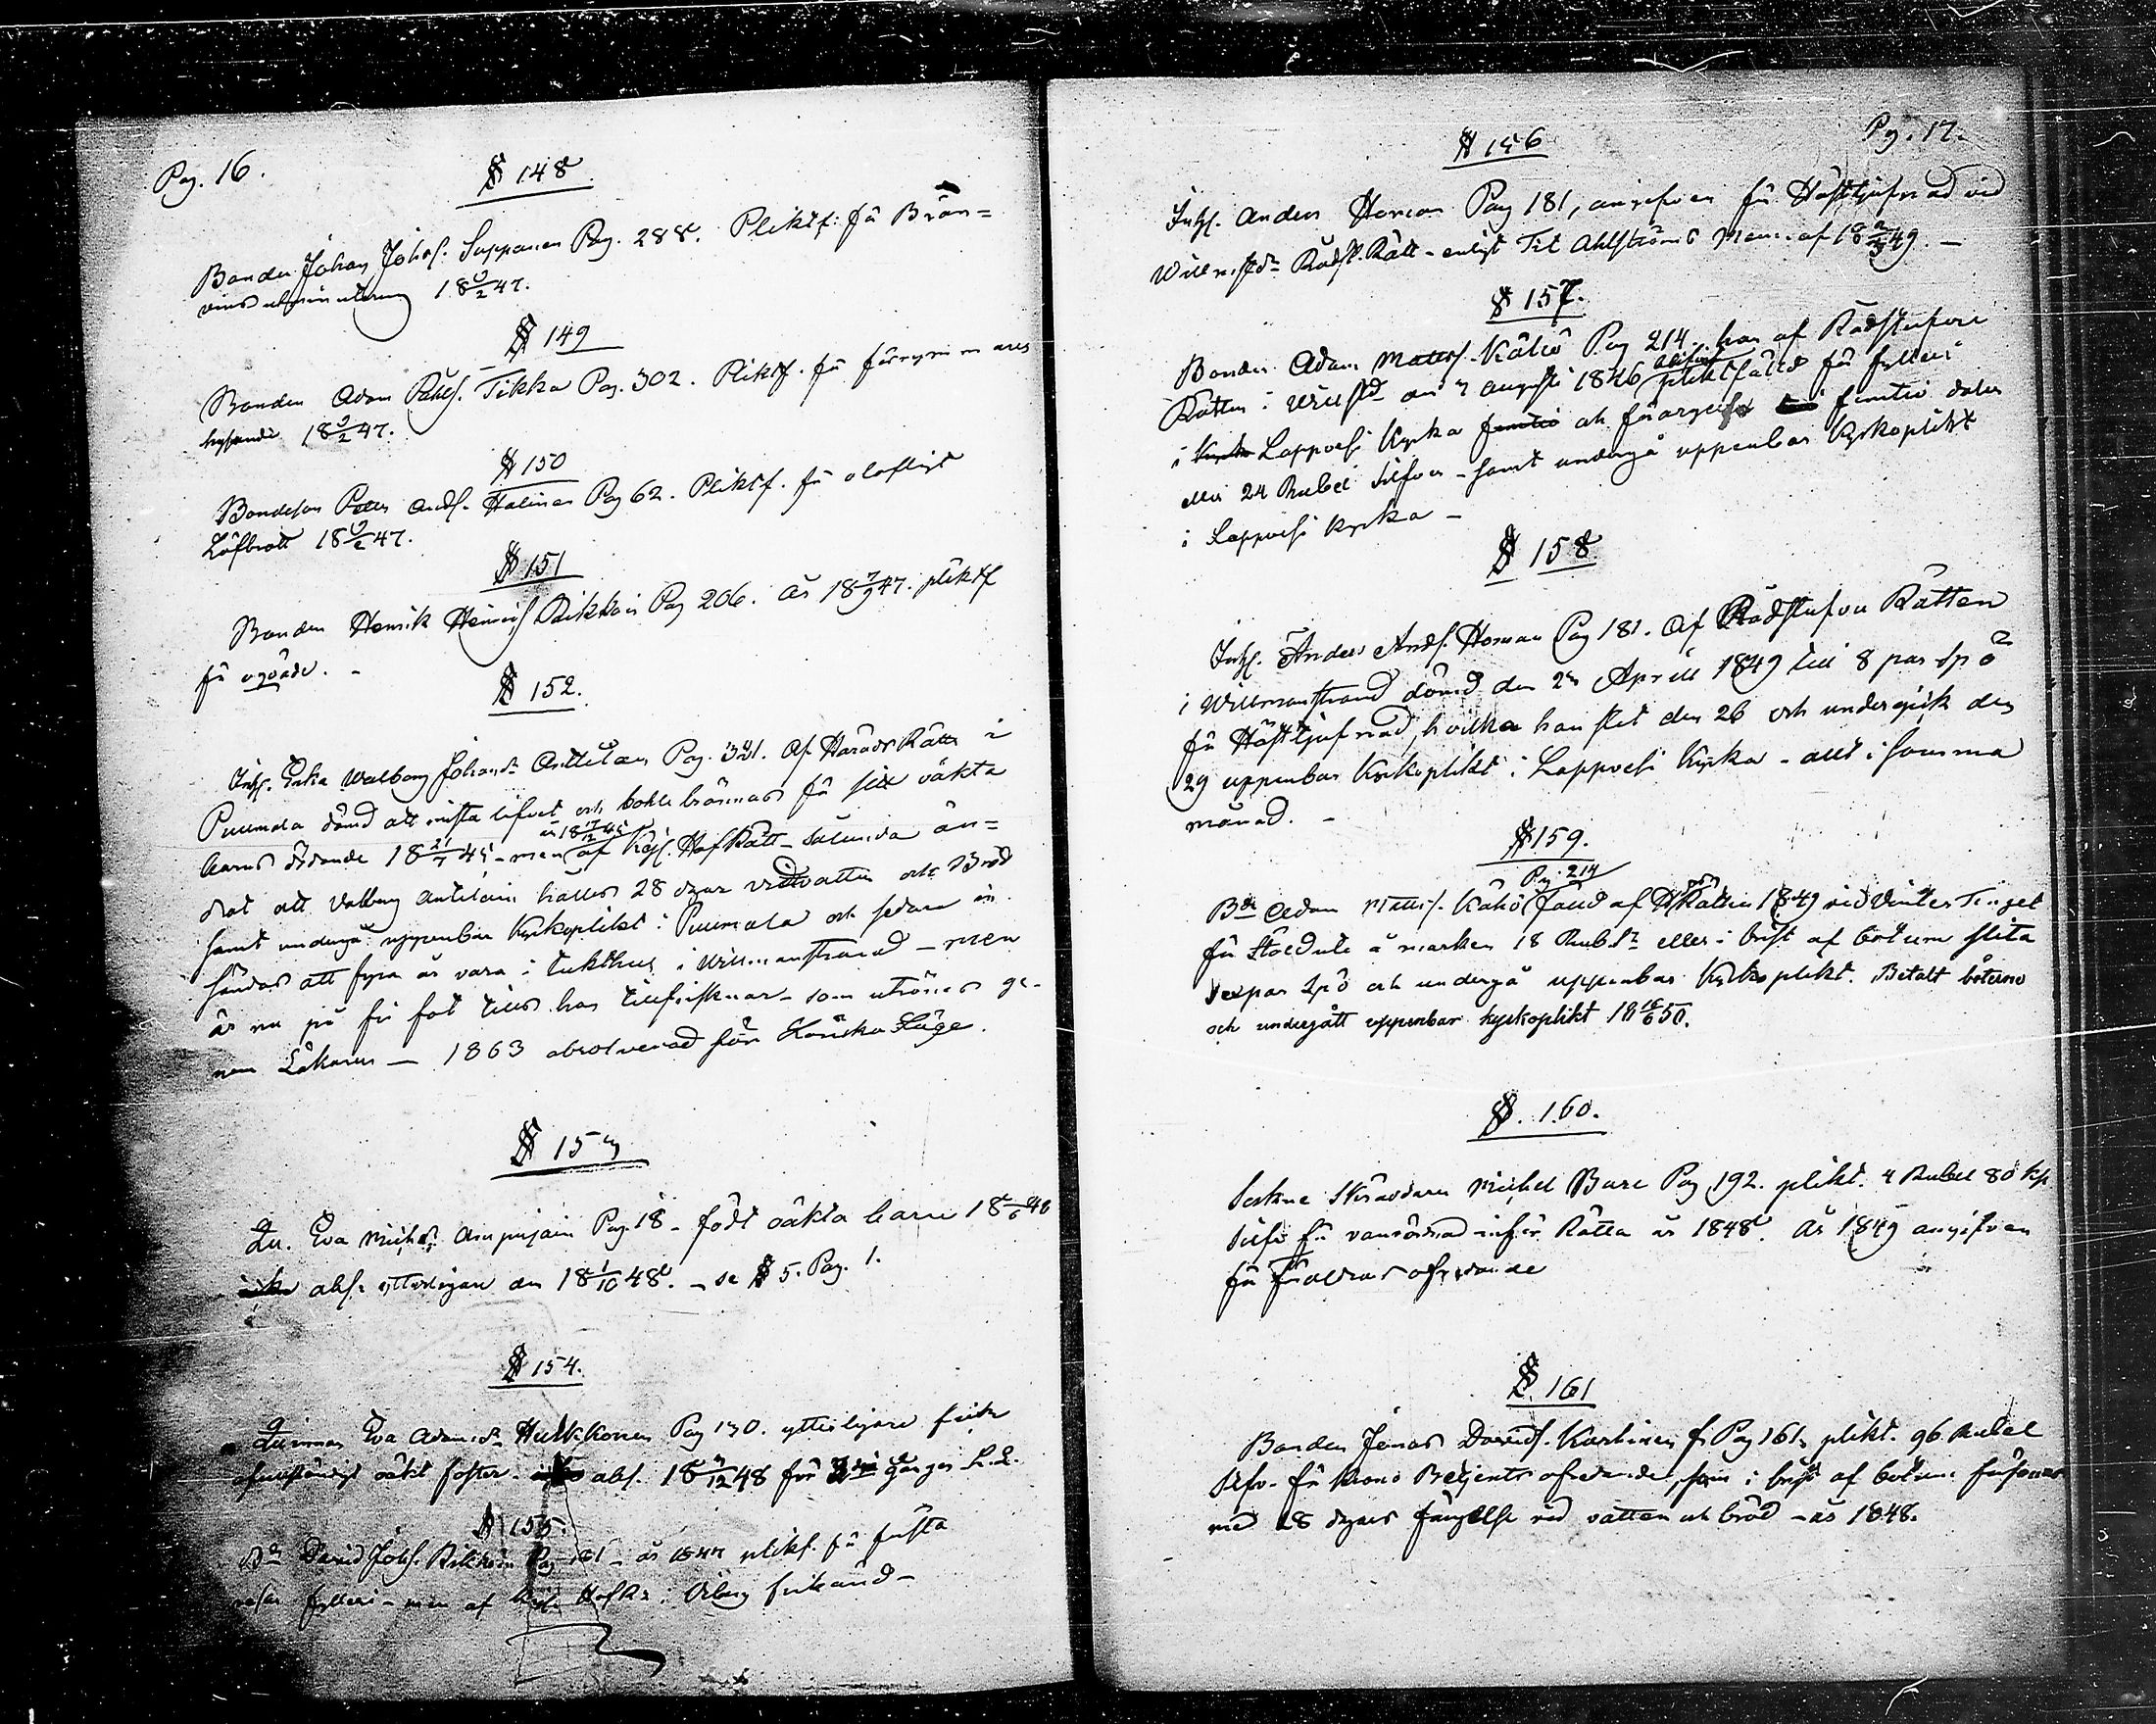 Pag. 16.
§ 148.
Bonden Johan Johs. Suppanen Pag. 288. Pliktf: för Brän=
vins utminutering 18 9/2 47.
§ 149
Bonden Adam Påhls. Tikka Pag. 302. Pliktf. för förrymmares
hysande 18 9/2 47.
§ 150
Bondeson Petter Ands. Halinen Pag 62. Pliktf. för olofligt
Löfbrott 18 9/2 47.
§ 151
Bonden Henrik Henrics Rikkoin Pag 206. År 18 7/9 47. pliktf
för ogväde. -
§ 152.
Inhs. Enka Walborg Johansd:r Anttilain Pag. 321. Af Härads Rätten i
Puumala dömd att mista lifvet och å båhle brännas för sitt oäkta
barns dödande 18 21/7 45 - men år 18 17/12 45 af Kejs. Hof Rätt - sålunda än=
drat att Valborg Antilain hålles 28 dygn vid vatten och Bröd
samt undergå uppenbar Kyrkoplikt i Puumala och sedan in
sändas att fyra år vara i tukthus i Willmanstrand - men
är nu på fri fot tills hon tillfrisknar - som utrönes ge-
nom Läkaren - 1863 absolverad från Höniska Läge.
§ 153
Qu. Eva Michelsd. Ampujain Pag. 18 - födt oäkta barn 18 2/6 48
abs. ytterligare den 18 1/10 48. - se § 5. Pag. 1.
§ 154.
Quinnan Eva Adamsd:r Hulkkonen Pag 130. ytterligare födt
ofullständigt oäkt foster - abs. 18 3/12 48 för 3die gången L.L.
§ 155.
B:n David Johs. Rikkoin Pag 181 - år 1847 pliktf. för första
resan fylleri - men af Kejs. Hofr: i Viborg frikänd -
Pg. 17.
§ 156
Inhs. Anders Homan Pag 181, angifven för Hästtjufnad vid
Willm.str:ds Rådst. Rätt - enligt Tit Ahlströms Mem. af 18 2/3 49. -
§ 157.
Bonden Adam Matts. Kähö Pag 214. har af Rådstufvu
Rätten i Will:str:d den 7 Augusti 1846 blifvit pliktfälld för fylleri
i Lappvesi Kyrka och förargelse femtio daler
eller 24 Rubel Silfver - samt undergå uppenbar Kyrkoplikt
i Lappvesi Kyrka -
§ 158.
Inhs. Anders Ands. Homan Pag 181. Af Rådstufvu Rätten
i Willmanstrand dömd den 23 Aprill 1849 till 8 par Spö
för Hästtjufnad, hvilka han slet den 26 och undergick den
29 uppenbar Kyrkoplikt i Lappvesi Kyrka - allt i samma
månad. -
§ 159.
Pg. 214
B:den Adam Matts. Kähö fälld af H Rätten 1849 vid Vinter Tinget
för Stöld ute å marken 18 Rub. S:r eller i brist af botum slita
sexpar Spö och undergå uppenbar Kyrkoplikt. Betalt böterne
och undergått uppenbar kyrkoplikt 18 16/6 50.
§. 160.
Sockne Skräddaren Michel Bure Pag 192. plikt. 4 Rubel 80 kp
Silfr för vanvördnad inför Rätta år 1848. År 1849 angifven
för föräldrars ofredande
§. 161
Bonden Jonas Davids. Karhinen f. Pag 161, plikt. 96 Rubel
Silfv. för Krono Betjents ofredande, som i brist af botum försonas
med 28 dygns fängelse vid vatten och bröd - år 1848.